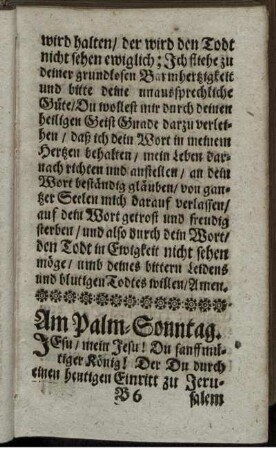 wird halten / der wird den Todt
nicht sehen ewiglich: Ich fliehe zu
deiner grundlosen Barmhertzigkeit
und bitte deine unaussprechliche
Güte / Du wollest mir durch deinen
heiligen Geist Gnade darzu verlei-
hen / daß ich dein Wort in meinem
Hertzen behalten / mein Leben dar-
nach richten und anstellen / an dein
Wort beständig gläuben / von gan-
tzer Seelen mich darauf verlassen /
auf dein Wort getrost und freudig
sterben / und also durch dein Wort /
den Todt in Ewigkeit nicht sehen
möge / umb deines bittern Leidens
und blutigen Todtes willen / Amen.
Am Palm-Sonntag.
JEsu / mein Jesu! Du sanfftmü-
tiger König! Der Du durch
einen heutigen Einritt zu Jeru-
B 6 salem